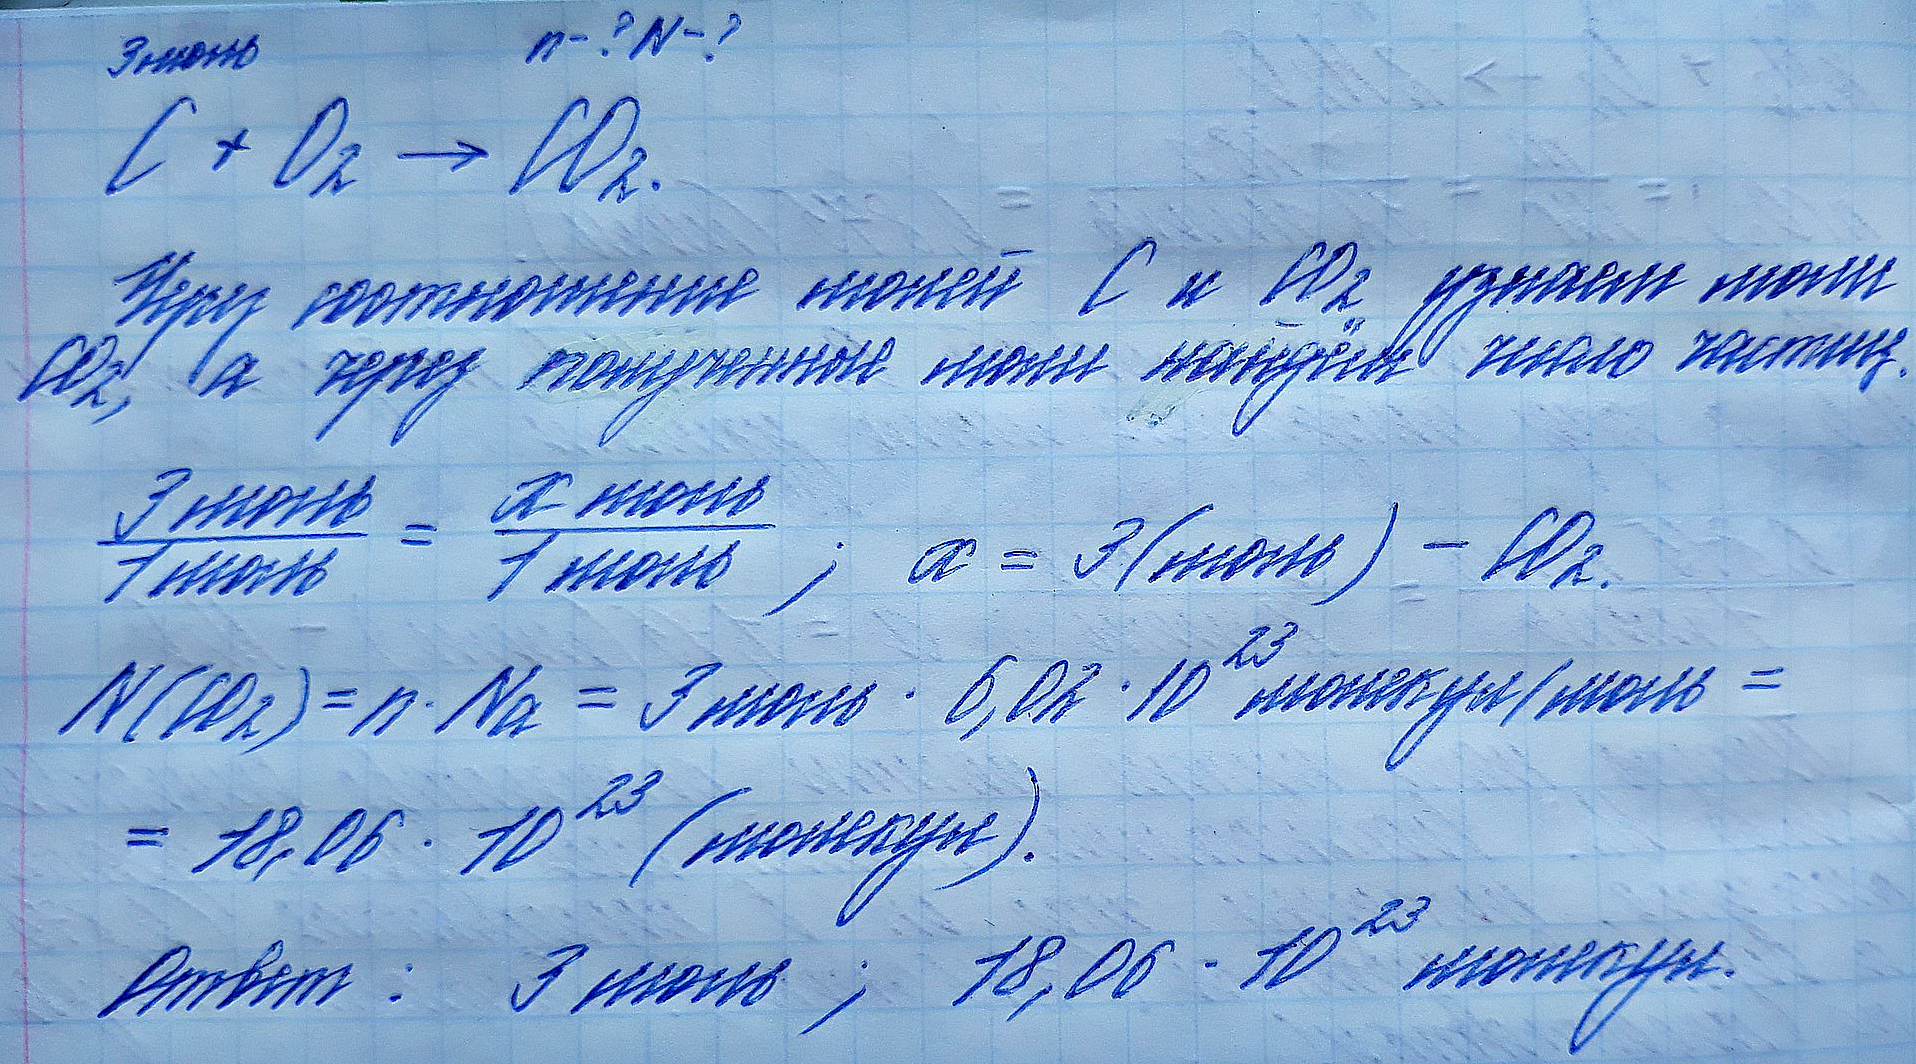 3 моль n-? N-?
C + O₂ → CO₂.
Чрез соотношение молей C и CO₂ узнаем моли
CO₂, а через полученные моли найдём число частиц.
3 моль / 1 моль = x моль / 1 моль ; x = 3 (моль) - CO₂.
N(CO₂) = n · Na = 3 моль · 6,02 · 10²³ молекул/моль =
= 18,06 · 10²³ (молекул).
Ответ : 3 моль ; 18,06 · 10²³ молекул.